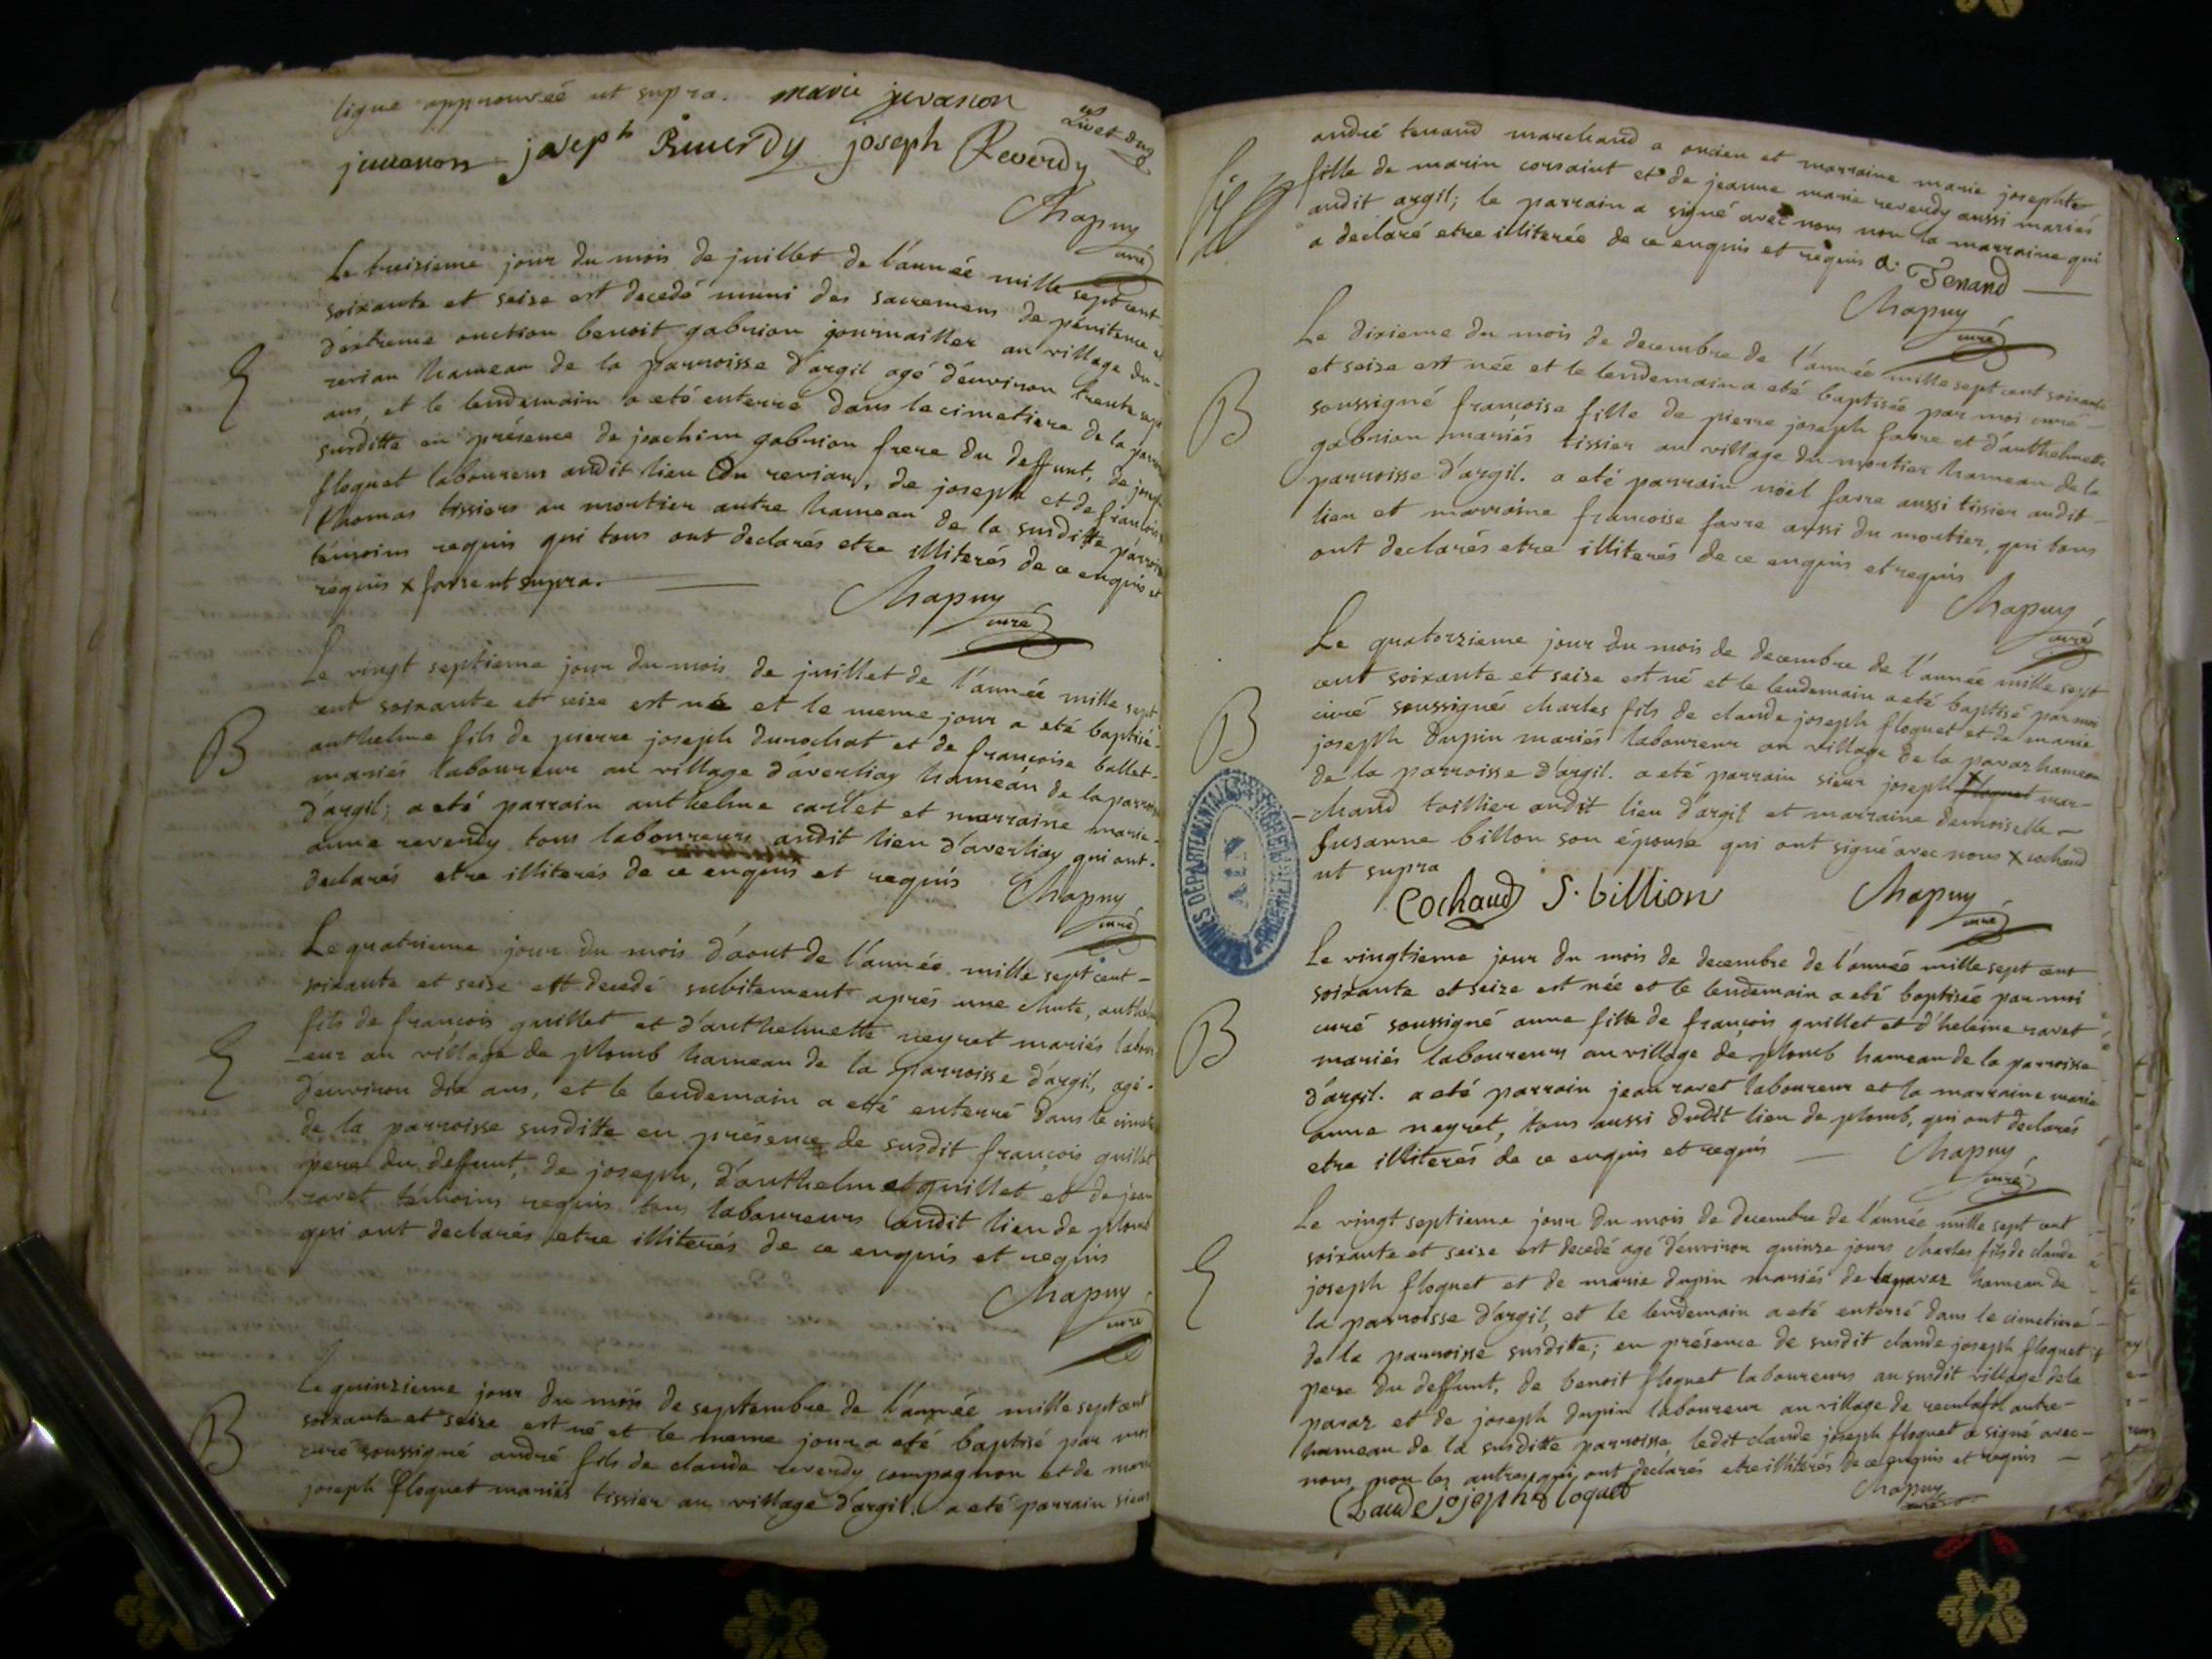 ligne approuvée ut supra. marie juvanon
juuanon joseph Reuerdy joseph Reverdy
Chapuy
curé
Le treisieme jour du mois de juillet de l'année mille sept cent
soixante et seise est decedé muni des sacremens de pénitence et
d'extreme onction benoit gabrion journaillier au village du
revian hameau de la parroisse d'argil agé d'environ trente sept
ans, et le lendemain a eté enterré dans le cimetiere de la parroi
susditte en présence de joachim gabrion frere du deffunt, de joseph
floquet laboureur audit lieu du revian, de joseph et de francois
thomas tissiers au montier autre hameau de la susditte parroi
témoins requis qui tous ont declarés etre illiterés de ce enquis et
requis x favre ut supra.
Chapuy
curé
B
Le vingt septieme jour du mois de juillet de l'année mille sept
cent soixante et seize est né et le meme jour a eté baptisé
anthelme fils de pierre joseph durochat et de françoise ballet
mariés laboureur au village d'averliay hameau de la parroisse
d'argil; a eté parrain anthelme carlet et marraine marie
anne reverdy tous laboureurs audit lieu d'averliay qui ont
declarés etre illiterés de ce enquis et requis Chapuy
curé
Le quatrieme jour du mois d'aout de l'année mille sept cent -
soixante et seise est decedé subitement aprés une chute, anthelm
fils de francois guillet et d'anthelmette neyret mariés labour
-eur au village de plomb hameau de la parroisse d'argil, agé
d'environ dix ans, et le lendemain a eté enterré dans le cimeti
de la parroisse susditte en présence de susdit françois guillet
pere du deffunt, de joseph, d'anthelme guillet et de jean
ravet témoins requis tous laboureurs audit lieu de plomb
qui ont declarés etre illiterés de ce enquis et requis
Chapuy
curé
B
Le quinzieme jour du mois de septembre de l'année mille sept cent
soixante et seize est né et le meme jour a eté baptisé par moi
curé soussigné andré fils de claude reverdy compagnon et de marie
joseph floquet mariés tissier au village d'argil. a eté parrain sieur
andré tenand marchand a oncieu et marraine marie josephte
fille de marin corsaint et de jeanne marie reverdy aussi mariés
audit argil; le parrain a signé avec nous non la marraine qui
a declaré etre illiterée de ce enquis et requis a. Tenand
Chapuy
curé
B
Le dixieme du mois de decembre de l'année mille sept cent soixante
et seize est née et le lendemain a eté baptisée par moi curé
soussigné françoise fille de pierre joseph favre et d'anthelmette
gabrion mariés tissier au village du montier hameau de la
parroisse d'argil. a eté parrain noël favre aussi tissier audit
lieu et marraine francoise favre aussi du montier, qui tous
ont declarés etre illiterés de ce enquis et requis
Chapuy
curé
B
Le quatorzieme jour du mois de decembre de l'année mille sept
cent soixante et seize est né et le lendemain a eté baptisé par moi
curé soussigné charles fils de claude joseph floquet et de marie
joseph dupin mariés laboureur au village de la pavaz hameau
de la parroisse d'argil. a eté parrain sieur joseph x floquet mar-
-chand toillier audit lieu d'argil et marraine demoiselle
susanne billon son épouse qui ont signé avec nous x cochaud
ut supra
Cochaud S. billion Chapuy
curé
ARCHIVES DÉPARTEMENTALES
AIN
B
Le vingtieme jour du mois de decembre de l'année mille sept cent
soixante et seize est née et le lendemain a eté baptisée par moi
curé soussigné anne fille de françois guillet et d'heleine ravet
mariés laboureurs au village de plomb hameau de la parroisse
d'argil. a eté parrain jean ravet laboureur et la marraine marie
anne neyret, tous aussi dudit lieu de plomb, qui ont declarés
etre illiterés de ce enquis et requis Chapuy
curé
Le vingt septieme jour du mois de decembre de l'année mille sept cent
soixante et seise est decedé agé d'environ quinze jours charles fils de claude
joseph floquet et de marie dupin mariés de lapavaz hameau de
la parroisse d'argil, et le lendemain a eté enterré dans le cimetiere
de la parroisse susditte; en présence de susdit claude joseph floquet
pere du deffunt, de benoit floquet laboureurs au susdit village de la
pavaz et de joseph dupin laboureur au village de autre-
hameau de la susditte parroisse, ledit claude joseph floquet a signé avec-
nous non les autres qui ont declarés etre illiterés de ce enquis et requis
Claude joseph floquet Chapuy
curé